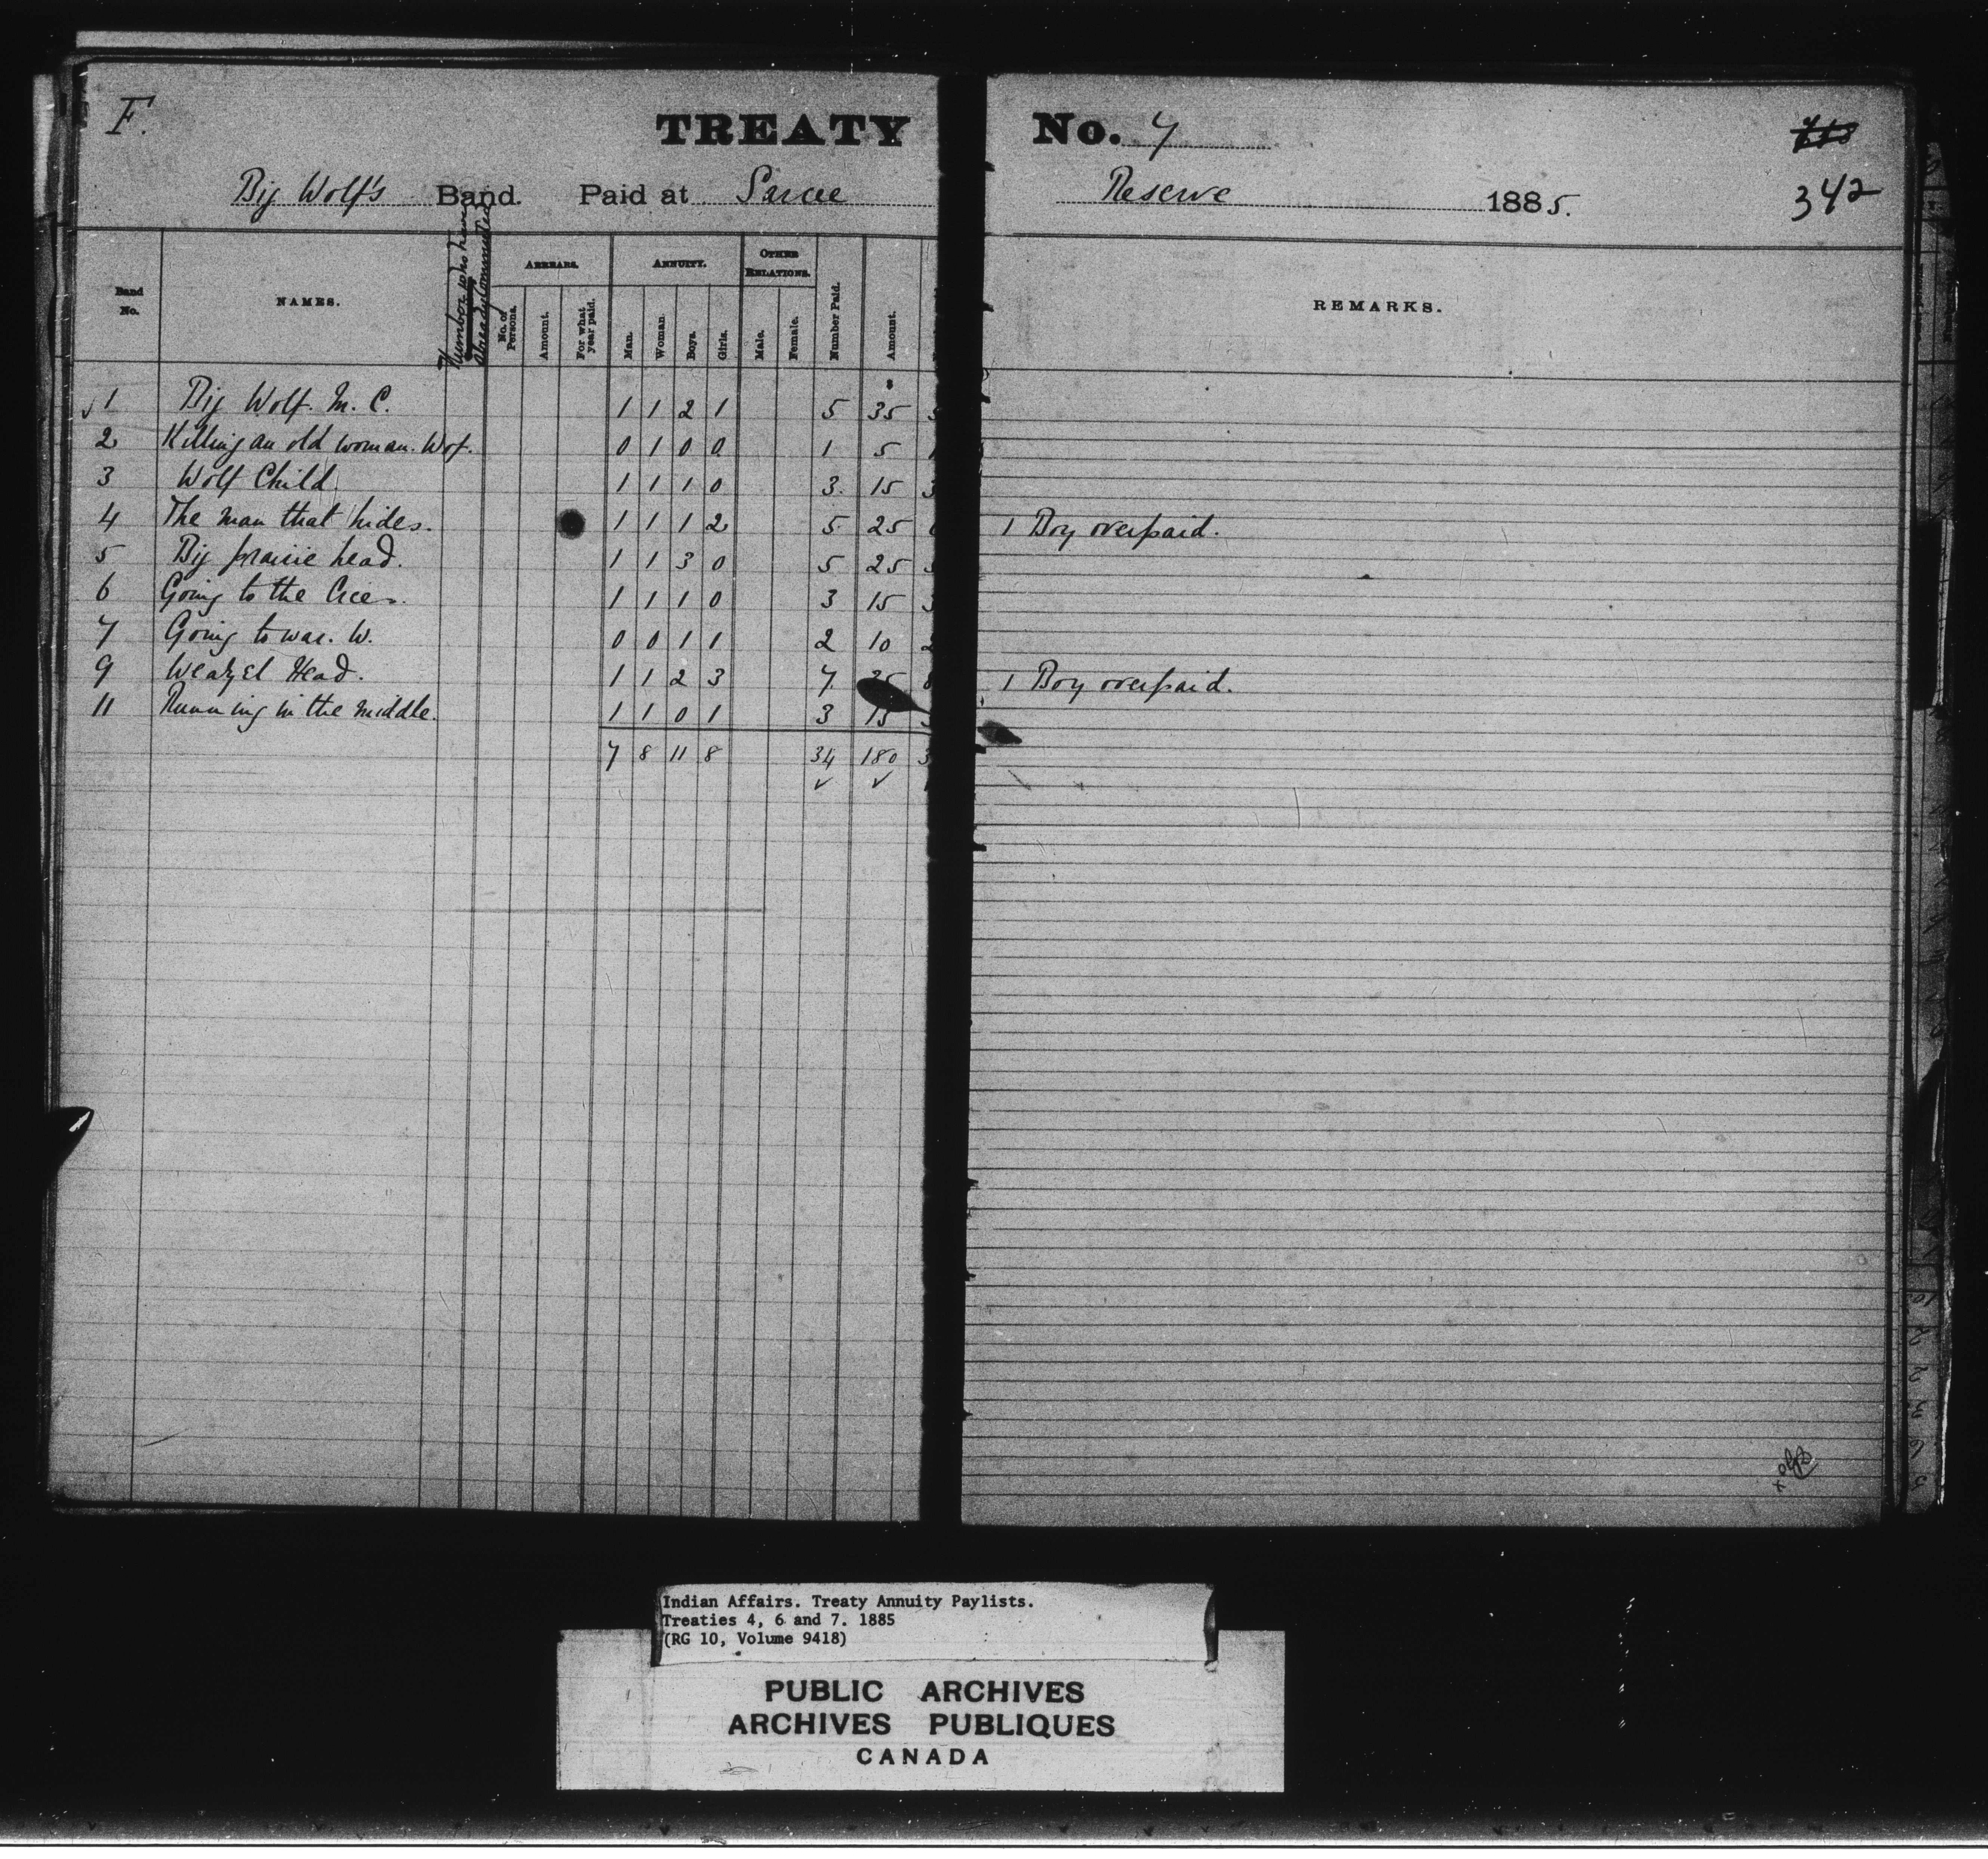 F.
TREATY No. 7
Big Wolf's Band. Paid at Sarcee Reserve 1885.
342
Band No.
NAMES.
Number who have already Commuted
ARREARS.
No. of Persons.
Amount.
For what year paid.
ANNUITY.
Man.
Woman.
Boys.
Girls.
OTHER RELATIONS.
Male.
Female.
Number Paid.
Amount.
REMARKS.
1 Big Wolf. M. C. 1 1 2 1 5 35
2 Killing an old woman. Wof. 0 1 0 0 1 5
3 Wolf Child 1 1 1 0 3. 15 3
4 The man that hides. 1 1 1 2 5 25 1 Boy overpaid.
5 Big prairie head. 1 1 3 0 5 25
6 Going to the Crees. 1 1 1 0 3 15 3
7 Going to war. W. 0 0 1 1 2 10 2
9 Weatzel Head. 1 1 2 3 7. 35 1 Boy overpaid.
11 Running in the middle. 1 1 0 1 3 15
7 8 11 8 34 180 3
Indian Affairs. Treaty Annuity Paylists.
Treaties 4, 6 and 7. 1885
(RG 10, Volume 9418)
PUBLIC ARCHIVES
ARCHIVES PUBLIQUES
CANADA